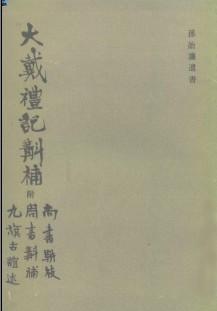 孫詒讓遺書
大戴禮記斠補
附
尚書駢枝
周書斠補
九旗古誼述